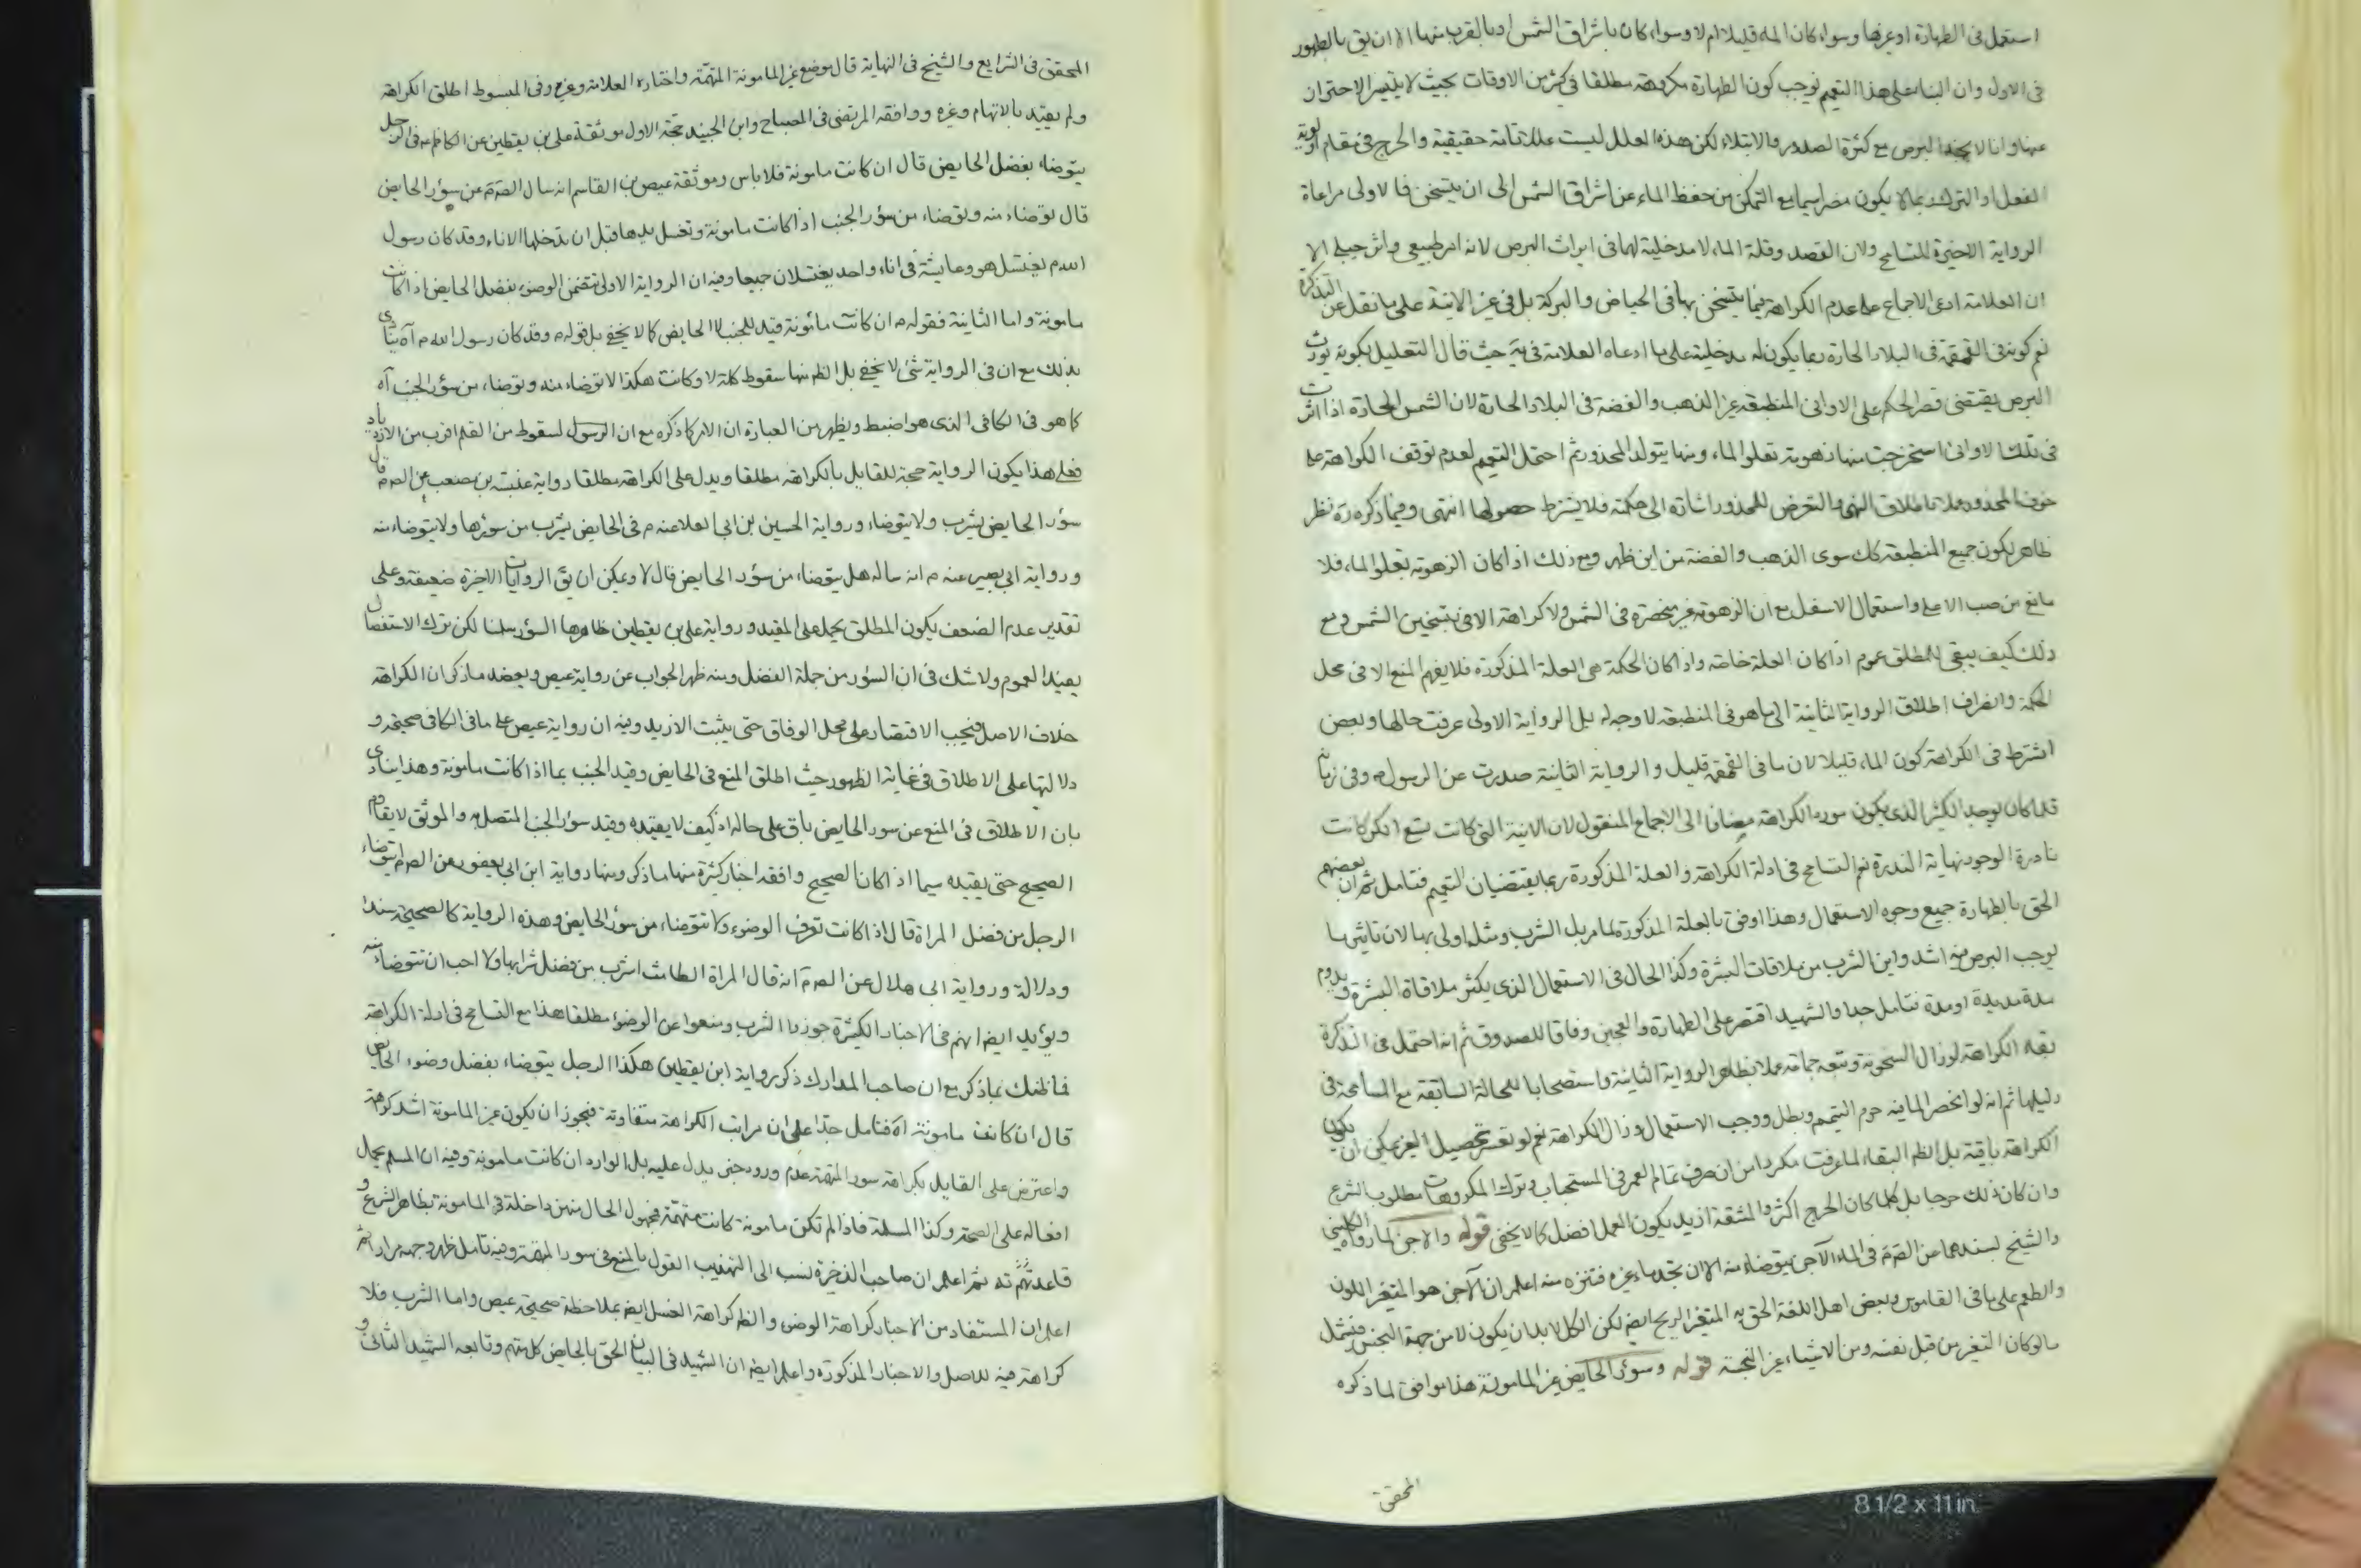 استعمل فى الطهارة او غيرها وسواء كان الماء قليلا ام لا وسواء كان باشراق الشمس او بالقرب منها الا ان يق بالظهور
فى الاول وان البناء على هذا التعميم يوجب كون الطهارة مكروهة مطلقا فى كثير من الاوقات بحيث لا يتيسر الاحتراز
عنها وانا لا نجد البرص مع كثرة الصدور والابتلاء لكن هذه العلل ليست عللا تامة حقيقية والحرج فى مقام اولوية
الفعل او الترك ربما لا يكون مضرا سيما مع التمكن من حفظ الماء عن اشراق الشمس الى ان يتسخن فالاولى مراعاة
الرواية الاخيرة للتسامح ولان القصد وقلة الماء لا مدخلية لهما فى ايراث البرص لانه امر طبيعى واثر جبلى الا
ان العلامة ادعى الاجماع على عدم الكراهة فيما يتسخن بها فى الحياض والبركة بل فى غير الانية على ما نقل عن التذكرة
نعم كونه فى القمقمة فى البلاد الحارة ربما يكون له مدخلية على ما ادعاه العلامة فى يه حيث قال التعليل بكونه يورث
البرص يقتضى قصر الحكم على الاوانى المنطبقة غير الذهب والفضة فى البلاد الحارة لان الشمس الحارة اذا اثرت
فى تلك الاوانى استخرجت منها زهومة تعلو الماء ومنها يتولد المحذور ثم احتمل التعميم لعدم توقف الكراهة على
خوف المحذور عملا باطلاق النهى والتعرض للمحذور اشارة الى حكمة فلا يشترط حصولها انتهى وفيما ذكره ره نظر
ظاهر لكون جميع المنطبقة كك سوى الذهب والفضة من اين ظهر ومع ذلك اذا كان الزهومة يعلو الماء فلا
مانع من صب الاعلى واستعمال الاسفل مع ان الزهومة غير منحصرة فى الشمس ولا كراهة الا فى تسخين الشمس ومع
ذلك كيف يبقى للمطلق عموم اذا كان العلة خاصة واذا كان الحكمة هى العلة المذكورة فلا يفهم المنع الا فى محل
الحكمة وانصراف اطلاق الرواية الثانية الى ما هو فى المنطبقة لا وجه له بل الرواية الاولى عرفت حالها وبعض
اشترط فى الكراهة كون الماء قليلا لان ما فى القمقمة قليل والرواية الثانية صدرت عن الرسول ص وفى زمانه
قلما كان يوجد الكثير الذى يكون مورد الكراهة مضافا الى الاجماع المنقول لان الانية التى كانت تسع الكر كانت
نادرة الوجود نهاية الندرة نعم التسامح فى ادلة الكراهة والعلة المذكورة ربما يقتضيان التعميم فتامل ثم ان بعضهم
الحق بالطهارة جميع وجوه الاستعمال وهذا اوفق بالعلة المذكورة لما مر بل الشرب ومثله اولى بها لان تاثير ما
يوجب البرص فيه اشد واين الشرب من ملاقات البشرة وكذا الحال فى الاستعمال الذى يكثر ملاقاة البشرة ويدوم
مدة مديدة او مدة فتامل جدا والشهيد اقتصر على الطهارة والعجين وفاقا للصدوق ثم انه احتمل فى التذكرة
بقاء الكراهة لو زال السخونة وتبعه جماعة عملا بظاهر الرواية الثانية واستصحابا للحالة السابقة مع المسامحة فى
دليلها ثم انه لو انحصر الماء فيه حرم التيمم وبطل ووجب الاستعمال وزال الكراهة نعم لو تعسر تحصيل الغير يمكن ان يكون
الكراهة باقية بل الظم البقاء لما عرفت مكررا من ان صرف تمام العمر فى المستحباب وترك المكروهات مطلوب الشرع
وان كان ذلك حرجا بل كلما كان الحرج اكثر والمشقة ازيد يكون العمل افضل كما لا يخفى قوله والاجن لما رواه الكلينى
والشيخ بسندهما عن الصم فى الماء الآجن يتوضاء منه الا ان تجد ماء غيره فتنزه منه اعلم ان الآجن هو المتغير اللون
والطعم على ما فى القاموس وبعض اهل اللغة الحق به المتغير الريح ايضا لكن الكل لا بد ان يكون لا من جهة النجس فيشمل
ما لو كان التغير من قبل نفسه ومن الاشياء غير النجسة قوله وسؤر الحايض غير المامونة هذا موافق لما ذكره
المحقق
المحقق فى الشرايع والشيخ فى النهاية قال بوضع غير المامونة المتهمة واختاره العلامة وغيره وفى المبسوط اطلق الكراهة
ولم يقيد بالاتهام وغيره ووافقه المرتضى فى المصباح وابن الجنيد حجة الاول موثقة على بن يقطين عن الكاظم ع فى الرجل
يتوضاء بفضل الحايض قال ان كانت مامونة فلا باس وموثقة عيص بن القاسم انه سال الصم عن سؤر الحايض
قال توضاء منه وتوضاء من سؤر الجنب اذا كانت مامونة وتغسل يدها قبل ان تدخلها الاناء وقد كان رسول
الله ص يغتسل هو وعايشة فى اناء واحد يغتسلان جميعا وفيه ان الرواية الاولى تتضمن الوضوء بفضل الحايض اذا كانت
مامونة واما الثانية فقوله م ان كانت مأمونة قيد للجنب لا الحايض كما لا يخفى بل قوله م وقد كان رسول الله م آه ينادى
بذلك مع ان فى الرواية شئ لا يخفى بل الظم منها سقوط كلمة لا وكانت هكذا لا توضاء منه وتوضاء من سؤر الجنب آه
كما هو فى الكافى الذى هو اضبط ويظهر من العبارة ان الامر كما ذكره مع ان الرسول لسقوط من القلم اقرب من الازدياد
فعلى هذا يكون الرواية حجة للقايل بالكراهة مطلقا ويدل على الكراهة مطلقا رواية عنبسة بن مصعب عن الصم قال
سؤر الحايض يشرب ولا يتوضاء ورواية الحسين بن ابى العلا عنه م فى الحايض يشرب من سؤرها ولا يتوضاء منه
ورواية ابى بصير عنه م انه ساله هل يتوضاء من سؤر الحايض قال لا ويمكن ان يق الروايات الاخيرة ضعيفة وعلى
تقدير عدم الضعف يكون المطلق يحمل على المقيد ورواية على بن يقطين ظاهرها السؤر سلمنا لكن ترك الاستفصال
يفيد العموم ولا شك فى ان السؤر من جملة الفضل ومنه ظهر الجواب عن رواية عيص ويعضد ما ذكر ان الكراهة
خلاف الاصل فيجب الاقتصار على محل الوفاق حتى يثبت الازيد وفيه ان رواية عيص على ما فى الكافى صحيحة و
دلالتها على الاطلاق فى غاية الظهور حيث اطلق المنع فى الحايض وقيد الجنب بما اذا كانت مامونة وهذا ينادى
بان الاطلاق فى المنع عن سور الحايض باق على حاله اذ كيف لا يقيده وقيد سؤر الجنب المتصل به والموثق لا يقاوم
الصحيح حتى يقيده سيما اذا كان الصحيح وافقه اخبار كثيرة منها ما ذكر ومنها رواية ابن ابى يعفور عن الصم ايتوضاء
الرجل من فضل المراة قال اذا كانت تعرف الوضوء ولا تتوضاء من سؤر الحايض وهذه الرواية كالصحيحة سندا
ودلالة ورواية ابى هلال عن الصم انه قال المراة الطامث اشرب من فضل شرابها ولا احب ان تتوضاء منه
ويؤيد ايضا انهم فى الاخبار الكثيرة جوزوا الشرب ومنعوا عن الوضوء مطلقا هذا مع التسامح فى ادلة الكراهة
فما ظنك بما ذكر مع ان صاحب المدارك ذكر رواية ابن يقطين هكذا الرجل يتوضاء بفضل وضوء الحايض
قال ان كانت مامونة آه فتامل جدا على ان مراتب الكراهة متفاوتة فيجوز ان يكون غير المامونة اشد كراهة
واعترض على القايل بكراهة سور المتهمة عدم ورود خبر يدل عليه بل الوارد ان كانت مامونة وفيه ان المسلم يحمل
افعاله على الصحة وكذا المسلمة فاذا لم تكن مامونة كانت متهمة فمجهول الحال منهن داخلة فى المامونة بظاهر الشرع و
قاعدتهم ثم اعلم ان صاحب الذخيرة نسب الى التهذيب القول بالمنع فى سور المتهمة وفيه تامل ظهر وجهه مرارا ثم
اعلم ان المستفاد من الاخبار كراهة الوضوء والظم كراهة الغسل ايضا بملاحظة صحيحة عيص واما الشرب فلا
كراهة فيه للاصل والاخبار المذكورة واعلم ايضا ان الشهيد فى البيان الحق بالحايض كل متهم وتابعه الشهيد الثانى و